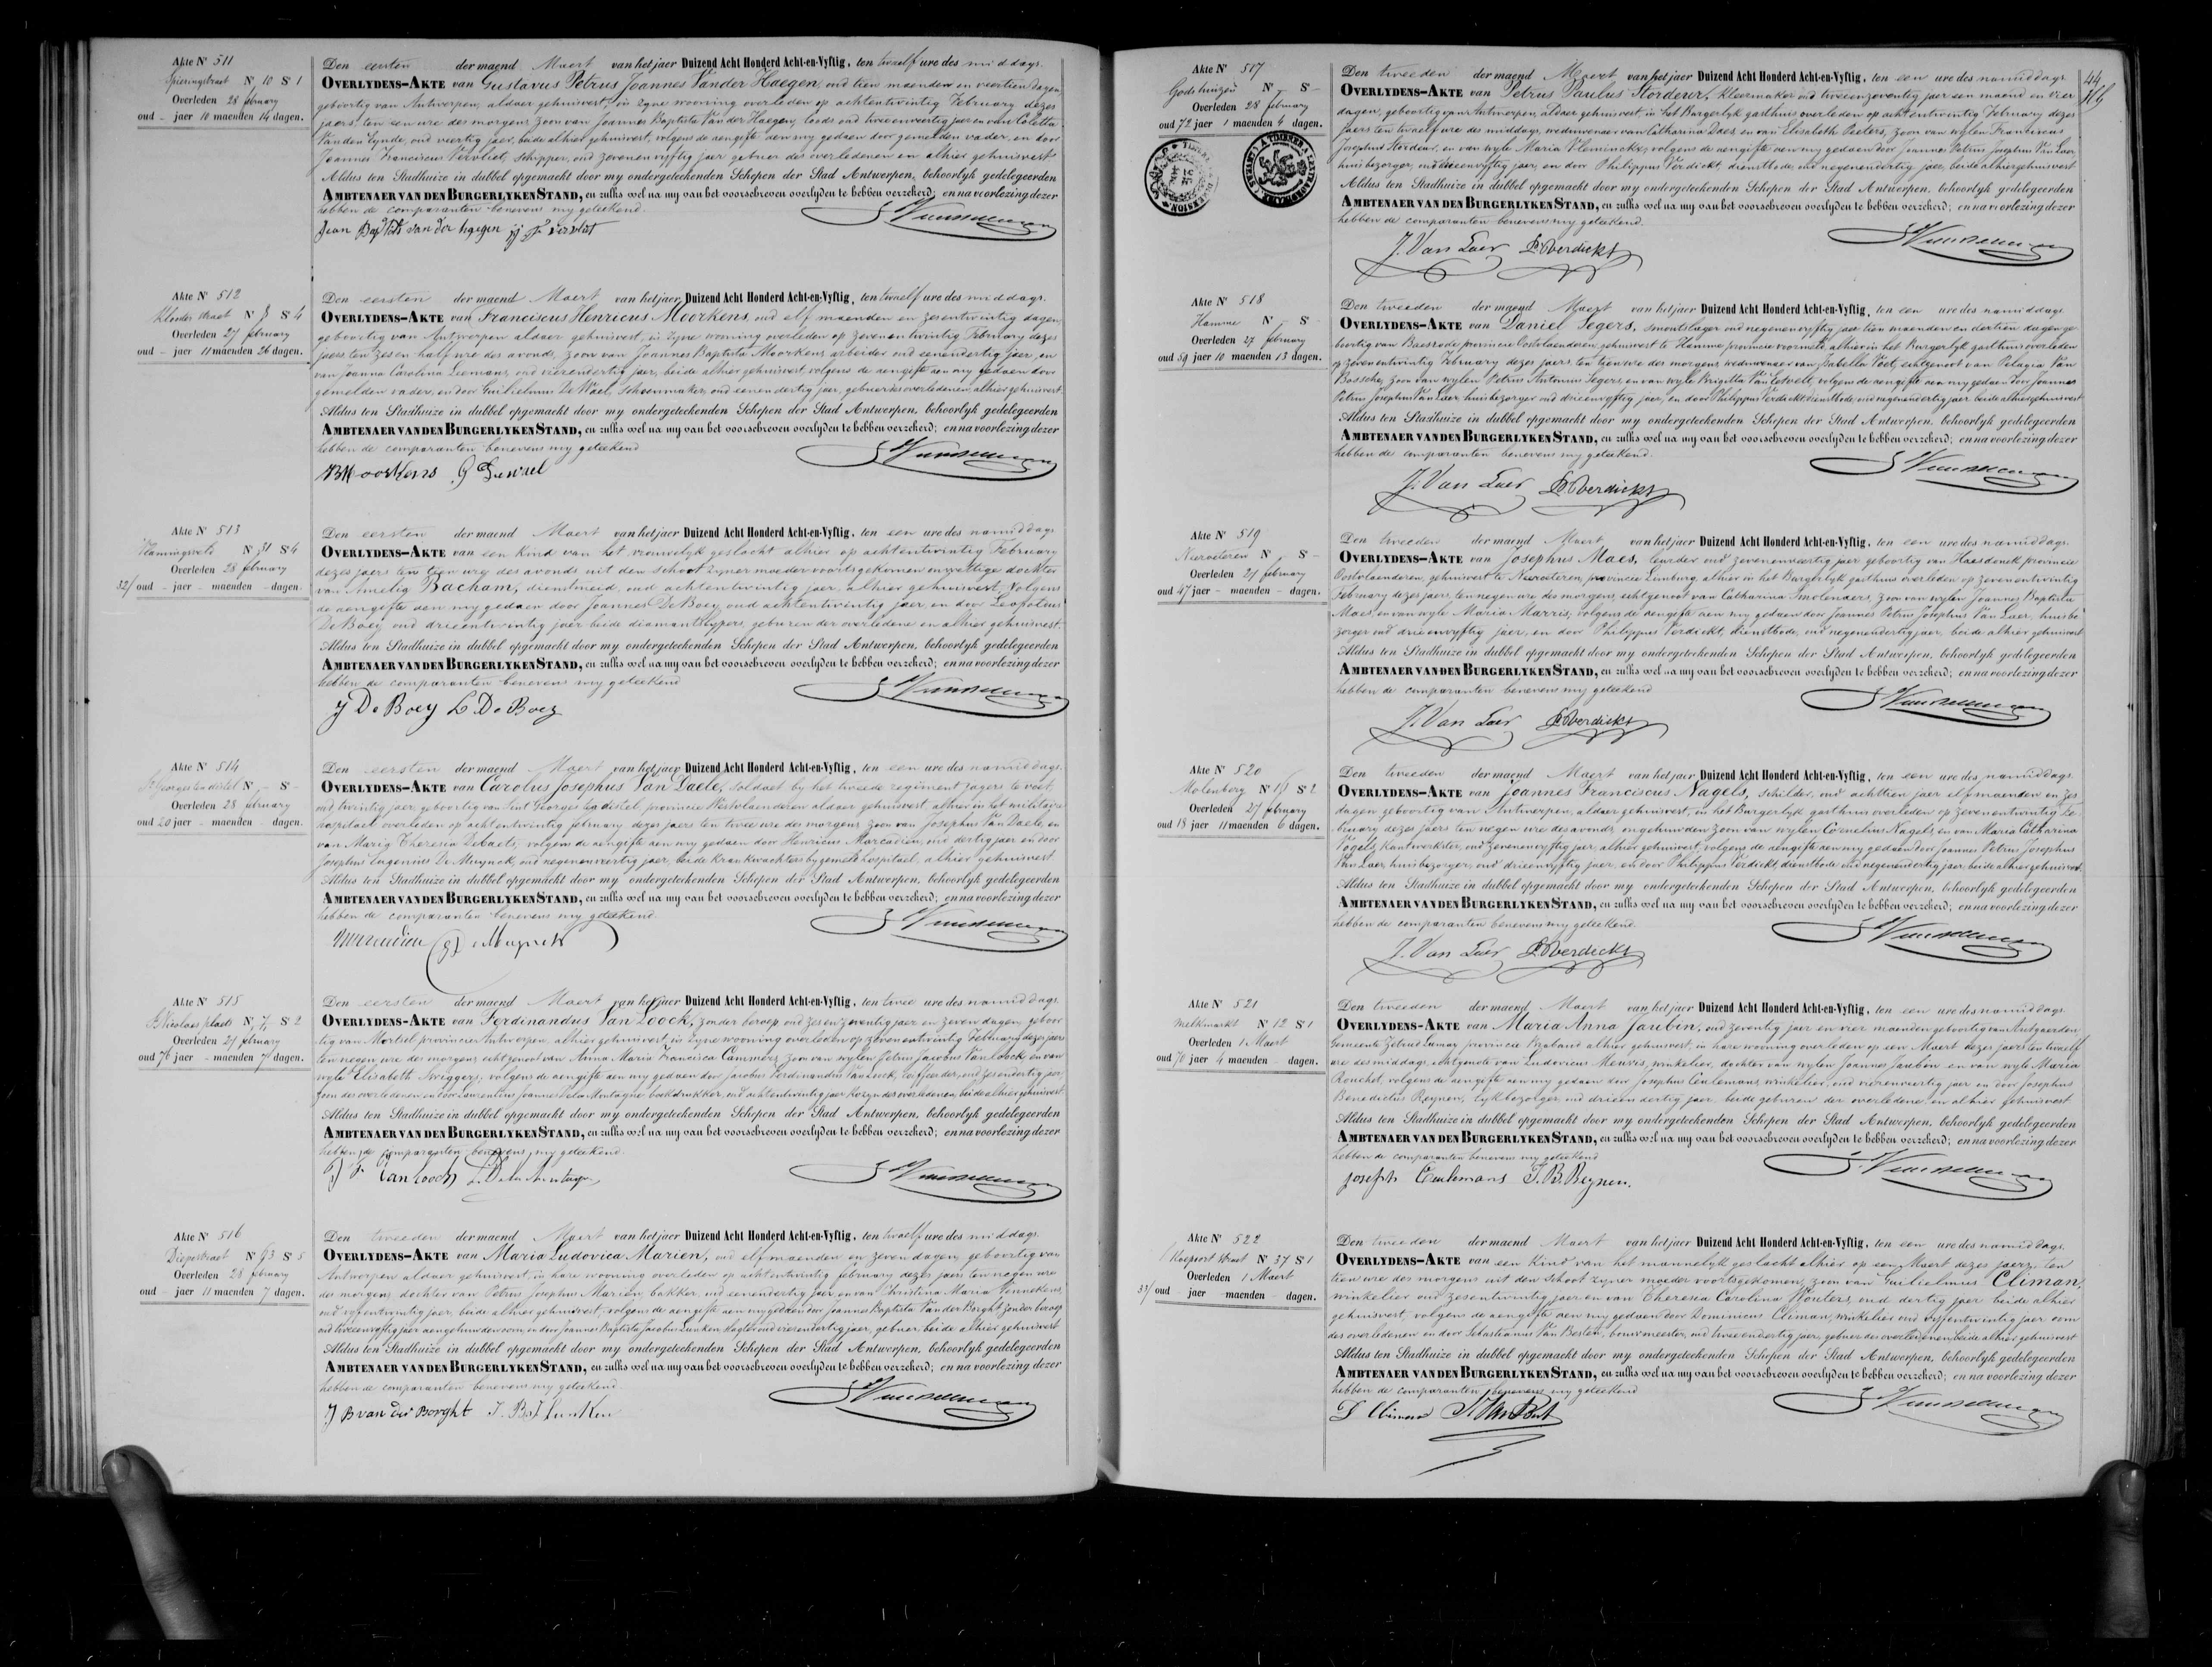 Akte Nr 511
Spieringstraat Nr 10 Sie 1
Overleden 28 february
oud - jaer 10 maenden 14 dagen.
Den eersten der maend Maert van het jaer Duizend Acht Honderd Acht-en-Vyftig, ten twaelf ure des middags.
OVERLYDENS-AKTE van Gustavus Petrus Joannes Vander Haegen, oud tien maenden en veertien dagen,
geboortig van Antwerpen, aldaer gehuisvest, in zyne wooning overleden op achtentwintig February dezes
jaers ten een ure des morgens zoon van Joannes Baptista Van der Haegen, loods oud tweeenveertig jaer en van Coletta
Van den Eynde, oud veertig jaer, beide alhier gehuisvest, volgens de aengifte aen my gedaen door gemelden vader, en door
Joannes Franciscus Vervliet, schipper, oud zevenenvyftig jaer gebuer des overledenen en alhier gehuisvest
Aldus ten Stadhuize in dubbel opgemaekt door my ondergeteekenden Schepen der Stad Antwerpen, behoorlyk gedelegeerden
AMBTENAER VAN DEN BURGERLYKEN STAND, en zulks wel na my van het voorschreven overlyden te hebben verzekerd; en na voorlezing dezer
hebben de comparanten benevens my geteekend.
Jean Baptste van der haegen j f vervliet
Akte Nr 512
Klooster straat Nr 3 Sie 4
Overleden 27 february
oud - jaer 11 maenden 26 dagen.
Den eersten der maend Maert van het jaer Duizend Acht Honderd Acht-en-Vyftig, ten twaelf ure des middags.
OVERLYDENS-AKTE van Franciscus Henricus Moorkens, oud elf maenden en zesentwintig dagen,
geboortig van Antwerpen aldaer gehuisvest, in zyne wooning overleden op zevenentwintig February dezes
jaers ten zes en half ure des avonds, zoon van Joannes Baptista Moorkens arbeider oud eenendertig jaer, en
van Joanna Carolina Leemans, oud vierendertig jaer, beide alhier gehuisvest, volgens de aengifte aen my gedaen door
gemelden vader, en door Guilielmus De Wael, schoenmaker, oud eenendertig jaer, gebuer des overledenen, alhier gehuisvest
Aldus ten Stadhuize in dubbel opgemaekt door my ondergeteekenden Schepen der Stad Antwerpen, behoorlyk gedelegeerden
AMBTENAER VAN DEN BURGERLYKEN STAND, en zulks wel na my van het voorschreven overlyden te hebben verzekerd; en na voorlezing dezer
hebben de comparanten benevens my geteekend
JB Moorkens G Dewael
Akte Nr 513
Vlamingsveld Nr 31 Sie 4
Overleden 28 february
32/ oud - jaer - maenden - dagen.
Den eersten der maend Maert van het jaer Duizend Acht Honderd Acht-en-Vyftig, ten een ure des namiddags
OVERLYDENS-AKTE van een kind van het vrouwelyk geslacht alhier op achtentwintig February
dezes jaers ten tien ure des avonds uit den schoot zyner moeder voortsgekomen onwettige dochter
van Amelia Bacham, dienstmeid, oud achtentwintig jaer, alhier gehuisvest. Volgens
de aengifte aen my gedaen door Joannes De Boey oud achtentwintig jaer, en door Leopoldus
De Boey oud drieentwintig jaer beide diamantslypers, geburen der overledene en alhier gehuisvest.
Aldus ten Stadhuize in dubbel opgemaekt door my ondergeteekenden Schepen der Stad Antwerpen, behoorlyk gedelegeerden
AMBTENAER VAN DEN BURGERLYKEN STAND, en zulks wel na my van het voorschreven overlyden te hebben verzekerd; en na voorlezing dezer
hebben de comparanten benevens my geteekend
J De Boey L De Boey
Akte Nr 514
St Georges ten distel Nr - Sie -
Overleden 28 february
oud 20 jaer - maenden - dagen.
Den eersten der maend Maert van het jaer Duizend Acht Honderd Acht-en-Vyftig, ten een ure des namiddags.
OVERLYDENS-AKTE van Carolus Josephus Van Daele, soldaet by het tweede regiment jagers te voet,
oud twintig jaer, geboortig van Sint Georges ten distel, provincie Westvlaenderen aldaer gehuisvest, alhier in het militaire
hospitael overleden op achtentwintig february dezes jaers ten twee ure des morgens zoon van Josephus Van Daele, en
van Maria Theresia Debaets, volgens de aengifte aen my gedaen door Henricus Marcadieu, oud dertig jaer en door
Josephus Eugenius De Muynck, oud negenenveertig jaer, beide krankwachters by gemeld hospitael, alhier gehuisvest
Aldus ten Stadhuize in dubbel opgemaekt door my ondergeteekenden Schepen der Stad Antwerpen, behoorlyk gedelegeerden
AMBTENAER VAN DEN BURGERLYKEN STAND, en zulks wel na my van het voorschreven overlyden te hebben verzekerd; en na voorlezing dezer
hebben de comparanten benevens my geteekend.
Marcadieu De Muynck
Akte Nr 515
St Nicolaes plaets Nr 7 Sie 2
Overleden 27 february
oud 76 jaer - maenden 7 dagen.
Den eersten der maend Maert van het jaer Duizend Acht Honderd Acht-en-Vyftig, ten twee ure des namiddags.
OVERLYDENS-AKTE van Ferdinandus Van Loock, zonder beroep oud zesenzeventig jaer en zeven dagen, geboor
tig van Mortsel provincie Antwerpen, alhier gehuisvest, in zyne wooning overleden op zevenentwintig February dezes jaers
ten negen ure des morgens echtgenoot van Anna Maria Francisca Cammers, zoon van wylen Petrus Jacobus Van Loock en van
wyle Elisabeth volgens de aengifte aen my gedaen door Jacobus Ferdinandus Van Loock, oud zesendertig jaer,
zoon des overledenen en door Laurentius Joannes Dela Montagne boekdrukker, oud achtentwintig jaer kozyn des overledenen, beide alhier gehuisvest
Aldus ten Stadhuize in dubbel opgemaekt door my ondergeteekenden Schepen der Stad Antwerpen, behoorlyk gedelegeerden
AMBTENAER VAN DEN BURGERLYKEN STAND, en zulks wel na my van het voorschreven overlyden te hebben verzekerd; en na voorlezing dezer
hebben de comparanten benevens my geteekend.
J F Van Loock L. Dela Montagne
Akte Nr 516
Diepestraat Nr 93 Sie 5
Overleden 28 february
oud - jaer 11 maenden 7 dagen.
Den tweeden der maend Maert van het jaer Duizend Acht Honderd Acht-en-Vyftig, ten twaelf ure des middags.
OVERLYDENS-AKTE van Maria Ludovica Marien, oud elf maenden en zeven dagen, geboortig van
Antwerpen aldaer gehuisvest, in hare wooning overleden op achtentwintig february dezes jaers ten negen ure
des morgens, dochter van Petrus Josephus Marien, bakker, oud eenendertig jaer, en van Christina Maria Gennekens,
oud vyfentwintig jaer, beide alhier gehuisvest, volgens de aengifte aen my gedaen door Joannes Baptista Van der Borght zonder beroep
oud tweeenvyftig jaer aengehuwden oom, en door Joannes Baptista Jacobus Lunken, slagter oud vierendertig jaer, gebuer, beide alhier gehuisvest
Aldus ten Stadhuize in dubbel opgemaekt door my ondergeteekenden Schepen der Stad Antwerpen, behoorlyk gedelegeerden
AMBTENAER VAN DEN BURGERLYKEN STAND, en zulks wel na my van het voorschreven overlyden te hebben verzekerd; en na voorlezing dezer
hebben de comparanten benevens my geteekend.
J B van der Borght J. B. J Lunken
44
Akte Nr 517
Gods huizen Nr - Sie -
Overleden 28 february
oud 72 jaer 1 maenden 4 dagen.
Den tweeden der maend Maert van het jaer Duizend Acht Honderd Acht-en-Vyftig, ten een ure des namiddags
OVERLYDENS-AKTE van Petrus Paulus Storderer, kleermaker oud tweeenzeventig jaer een maend en vier
dagen, geboortig van Antwerpen, aldaer gehuisvest, in het Burgerlyk gasthuis overleden op achtentwintig February dezes
jaers ten twaelf ure des middags, weduwenaer van Catharina Daes en van Elisabeth Peeters, zoon van wylen Franciscus
Josephus Stordeur, en van wyle Maria Vleminckx, volgens de aengifte aen my gedaen door Joannes Petrus Josephus Van Laer,
huisbezorger, oud drieenvyftig jaer, en door Philippus Verdickt, dienstbode oud negenendertig jaer, beide alhier gehuisvest
Aldus ten Stadhuize in dubbel opgemaekt door my ondergeteekenden Schepen der Stad Antwerpen, behoorlyk gedelegeerden
AMBTENAER VAN DEN BURGERLYKEN STAND, en zulks wel na my van het voorschreven overlyden te hebben verzekerd; en na voorlezing dezer
hebben de comparanten benevens my geteekend.
J. Van Laer P. Verdickt
Akte Nr 518
Hamme Nr - Sie -
Overleden 27 february
oud 59 jaer 10 maenden 13 dagen.
Den tweeden der maend Maert van het jaer Duizend Acht Honderd Acht-en-Vyftig, ten een ure des namiddags
OVERLYDENS-AKTE van Daniel Segers, smoutslager oud negenenvyftig jaer tien maenden en dertien dagen ge
boortig van Baesrode provincie Oostvlaenderen, gehuisvest te Hamme provincie voormeld, alhier in het Burgerlyk gasthuis overleden
op zevenentwintig February dezes jaers, ten tien ure des morgens weduwenaer van Isabella Poet, echtgenoot van Pelagia Van
Bossche, zoon van wylen Petrus Antonius Segers, en van wyle Brigitta Van volgens de aengifte aen my gedaen door Joannes
Petrus Josephus Van Laer, huisbezorger oud drieenvyftig jaer, en door Philippus Verdickt dienstbode, oud negenendertig jaer beide alhier gehuisvest
Aldus ten Stadhuize in dubbel opgemaekt door my ondergeteekenden Schepen der Stad Antwerpen, behoorlyk gedelegeerden
AMBTENAER VAN DEN BURGERLYKEN STAND, en zulks wel na my van het voorschreven overlyden te hebben verzekerd; en na voorlezing dezer
hebben de comparanten benevens my geteekend.
J. Van Laer P. Verdickt
Akte Nr 519
Neeroeteren Nr - Sie -
Overleden 27 february
oud 47 jaer - maenden - dagen.
Den tweeden der maend Maert van het jaer Duizend Acht Honderd Acht-en-Vyftig, ten een ure des namiddags.
OVERLYDENS-AKTE van Josephus Maes, leurder oud zevenenveertig jaer geboortig van Haesdonck provincie
Oostvlaenderen, gehuisvest te Neeroeteren, provincie Limburg, alhier in het Burgerlyk gasthuis overleden op zevenentwintig
February dezes jaers, ten negen ure des morgens, echtgenoot van Catharina Smolenaers, zoon van wylen Joannes Baptista
Maes, en van wyle Maria Marris, volgens de aengifte aen my gedaen door Joannes Petrus Josephus Van Laer, huisbe
zorger oud drieenvyftig jaer, en door Philippus Verdickt, dienstbode, oud negenendertig jaer, beide alhier gehuisvest
Aldus ten Stadhuize in dubbel opgemaekt door my ondergeteekenden Schepen der Stad Antwerpen, behoorlyk gedelegeerden
AMBTENAER VAN DEN BURGERLYKEN STAND, en zulks wel na my van het voorschreven overlyden te hebben verzekerd; en na voorlezing dezer
hebben de comparanten benevens my geteekend
J. Van Laer P. Verdickt
Akte Nr 520
Molenberg Nr 15 Sie 2
Overleden 27 february
oud 18 jaer 11 maenden 6 dagen.
Den tweeden der maend Maert van het jaer Duizend Acht Honderd Acht-en-Vyftig, ten een ure des namiddags.
OVERLYDENS-AKTE van Joannes Franciscus Nagels, schilder, oud achttien jaer elf maenden en zes
dagen geboortig van Antwerpen, aldaer gehuisvest, in het Burgerlyk gasthuis overleden op zevenentwintig Fe
bruary dezes jaers ten negen ure des avonds, ongehuwden zoon van wylen Cornelius Nagels, en van Maria Catharina
Vogels, kantwerkster, oud zevenenvyftig jaer, alhier gehuisvest, volgens de aengifte aen my gedaen door Joannes Petrus Josephus
Van Laer, huisbezorger, oud drieenvyftig jaer, en door Philippus Verdickt, dienstbode oud negenendertig jaer, beide alhier gehuisvest.
Aldus ten Stadhuize in dubbel opgemaekt door my ondergeteekenden Schepen der Stad Antwerpen, behoorlyk gedelegeerden
AMBTENAER VAN DEN BURGERLYKEN STAND, en zulks wel na my van het voorschreven overlyden te hebben verzekerd; en na voorlezing dezer
hebben de comparanten benevens my geteekend.
J. Van Laer P. Verdickt
Akte Nr 521
Melkmarkt Nr 12 Sie 1
Overleden 1 Maert
oud 70 jaer 4 maenden - dagen.
Den tweeden der maend Maert van het jaer Duizend Acht Honderd Acht-en-Vyftig, ten een ure des namiddags
OVERLYDENS-AKTE van Maria Anna Jaubin, oud zeventig jaer en vier maenden geboortig van Autgaerden,
Gemeente Zetrud Lumay provincie Braband alhier gehuisvest, in hare wooning overleden op een Maert dezes jaers ten twaelf
ure des middags, echtgenote van Ludovicus Meuris, winkelier, dochter van wylen Joannes Jaubin en van wyle Maria
Rouchet, volgens de aengifte aen my gedaen door Josephus Ceulemans, winkelier, oud vierenveertig jaer en door Josephus
Benedictus Reynen, lykbezorger, oud drieendertig jaer, beide geburen der overledene, en alhier gehuisvest
Aldus ten Stadhuize in dubbel opgemaekt door my ondergeteekenden Schepen der Stad Antwerpen, behoorlyk gedelegeerden
AMBTENAER VAN DEN BURGERLYKEN STAND, en zulks wel na my van het voorschreven overlyden te hebben verzekerd; en na voorlezing dezer
hebben de comparanten benevens my geteekend
joseph Ceulemans J. B. Reynen.
Akte Nr 522
Koepoort straat Nr 37 Sie 1
Overleden 1 Maert
33/ oud - jaer - maenden - dagen.
Den tweeden der maend Maert van het jaer Duizend Acht Honderd Acht-en-Vyftig, ten een ure des namiddags.
OVERLYDENS-AKTE van een kind van het mannelyk geslacht alhier op een Maert dezes jaers, ten
tien ure des morgens uit den schoot zyner moeder voortsgekomen, zoon van Guilielmus Climan,
winkelier oud zesentwintig jaer en van Theresia Carolina Wouters, oud dertig jaer beide alhier
gehuisvest, volgens de aengifte aen my gedaen door Dominicus Climan, winkelier oud vyfentwintig jaer oom
des overledenen en door Sebastianus Van Berlen, bouwmeester, oud tweeendertig jaer, gebuer des overledenen, beide alhier gehuisvest
Aldus ten Stadhuize in dubbel opgemaekt door my ondergeteekenden Schepen der Stad Antwerpen, behoorlyk gedelegeerden
AMBTENAER VAN DEN BURGERLYKEN STAND, en zulks wel na my van het voorschreven overlyden te hebben verzekerd; en na voorlezing dezer
hebben de comparanten benevens my geteekend
D Climan